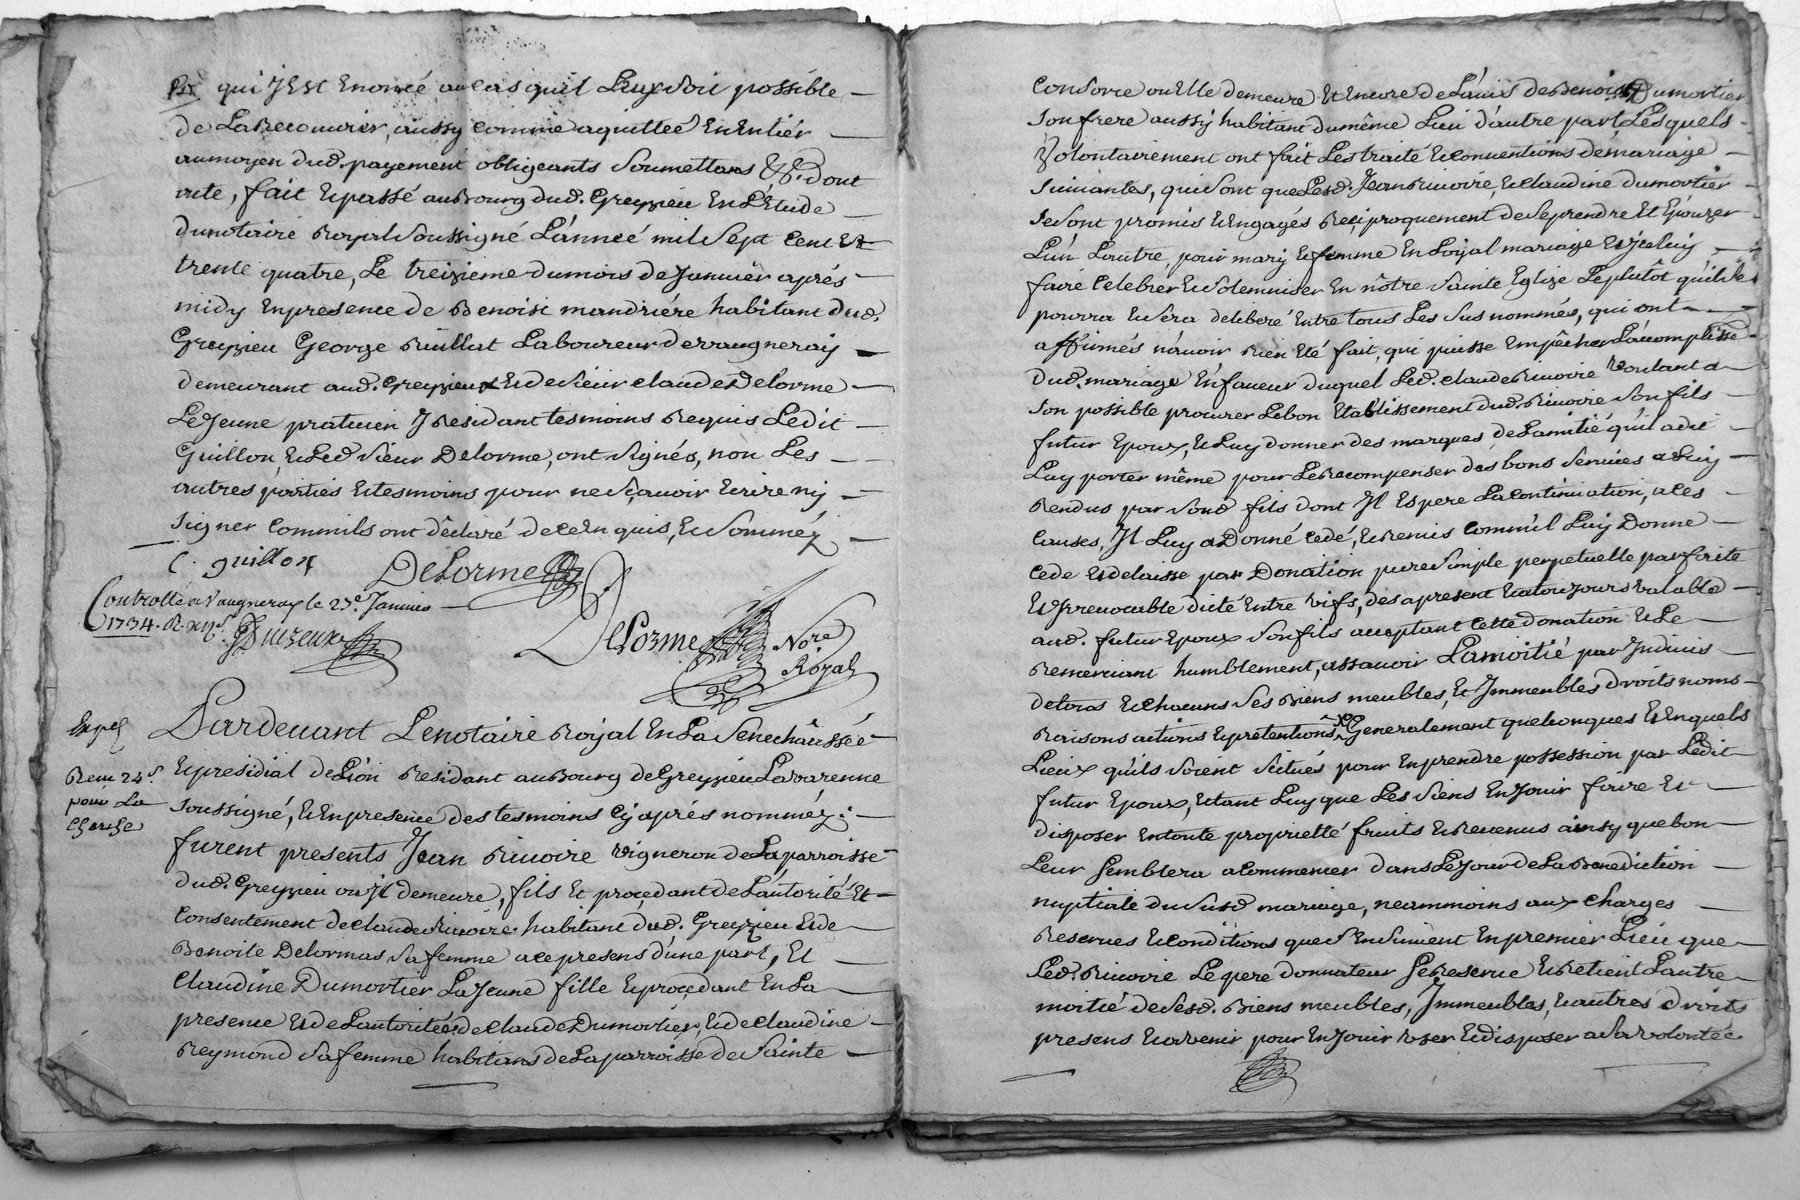 qui y est enoncé au cas quil Leux soit possible
de La Recouvrer, aussy comme aquittee En Entiér
au moyen dud. payement obligeants soumettans &c. dont
acte, fait Et passé au Bourg dud. Greyzieu En L'Etude
du notaire Royal Soussigné L'année mil Sept Cent Et
trente quatre, Le treizieme du mois de Janvier aprés
midy En presence de Benoist mandriére habitant dud.
Greyzieu George Ruillat Laboureur de vaugneraÿ
demeurant aud. Greyzieux Et de Siéur claude Delorme
Le Jeune praticien y Residant tesmoins Requis Ledit
Guillon, Et Led. Sieur Delorme, ont signés, non Les
autres partiés Et tesmoins pour ne Sçavoir Ecrire nÿ
signer comm'ils ont déclaré de ce Enquis, Et Sommèz
C. guillon Delorme
Controllé a Vaugneray le 23e Janvier
1734. R.
Delorme Nore.
Royal
Expé
Pardevant Le notaire Roÿal En La Senechâussée
Et presidial de Lÿon Residant au Bourg de Greyzieu Lavarenne
Reçu 24s
pour La
soussigné, Et En presence des tesmoins cÿ aprés nomméz:
furent presents Jean Rivoire vigneron de La parroisse
dud. Greyzieu ou Il demeure, fils Et procedant de L'autorité Et
Consentement de claude Rivoire habitant dud. Greyzieu Et de
Benoite Delormas sa femme a ce presens d'une part, Et
Claudine Dumortier La Jeune fille Et procedant En La
presence Et de L'autorité de claude Dumortier, Et de claudine
Reymond sa femme habitans de La parroisse de Sainte
Consorce ou Elle demeure Et Encore de L'avis de Benoist Dumortier
son frere aussy habitant du même Lieu d'autre part Lesquels
Volontairement ont fait Les traité Et conventions de mariage
suivantes, qui sont que Lesd. Jean Rivoire, Et claudine Dumortier
se sont promis Et Engagés Reciproquement de se prendre Et Epouzer
L'un L'autre pour mary Et femme En Loyal mariage Et Iceluy
faire Celebrer Et solemniser En nôtre Sainte Eglize Le plutôt qu'il se
pourra Et sera deliberé Entre tous Les Sus nommés, qui ont
affirmés n'avoir Rien Eté fait, qui puisse Empêcher L'accomplisse
dud. mariage En faveur duquel Led. claude Rivoire voulant a
son possible procurer Le bon Etablissement dud. Rivoire son fils
futur Epoux, Et Luy donner des marques de L'amitié qu'il a dit
Luy porter même pour Le Recompenser des bons services a Luy
Rendus par sond. fils dont Il Espere La continuation, a ces
causes, Il Luy a Donné cedé, Et Remis comm'il Luy Donne
cede Et delaisse par Donation pure simple perpetuelle parfaite
Et Irrevocable ditte Entre vifs, des a present Et a toujours valable
aud. futur Epoux son fils acceptant cette donation Et Le
Remerciant humblement, assavoir La moitié par Indivis
de tous Et chacuns ses Biens meubles, Et Immeubles droits noms
Raisons actions Et pretentions Generalement quelconques Et En quels
Lieux qu'ils soient situés pour En prendre possession par Ledit
futur Epoux, Et tant Luy que Les siens En Jouir faire Et
disposer En toute proprietté fruits Et Revenus ainsy que bon
Leur Semblera a Commencer dans Le Jour de La Benediction
nuptiale du susd. mariage, neammoins aux charges
Reserves Et conditions que s'Ensuivent En premier Lieu que
Led. Rivoire Le pere donnateur Se Reserve Et Retient L'autre
moitié de sesd. Biens meubles, Immeubles, Et autres droits
presens Et avenir pour En Jouir user Et disposer a sa volontée